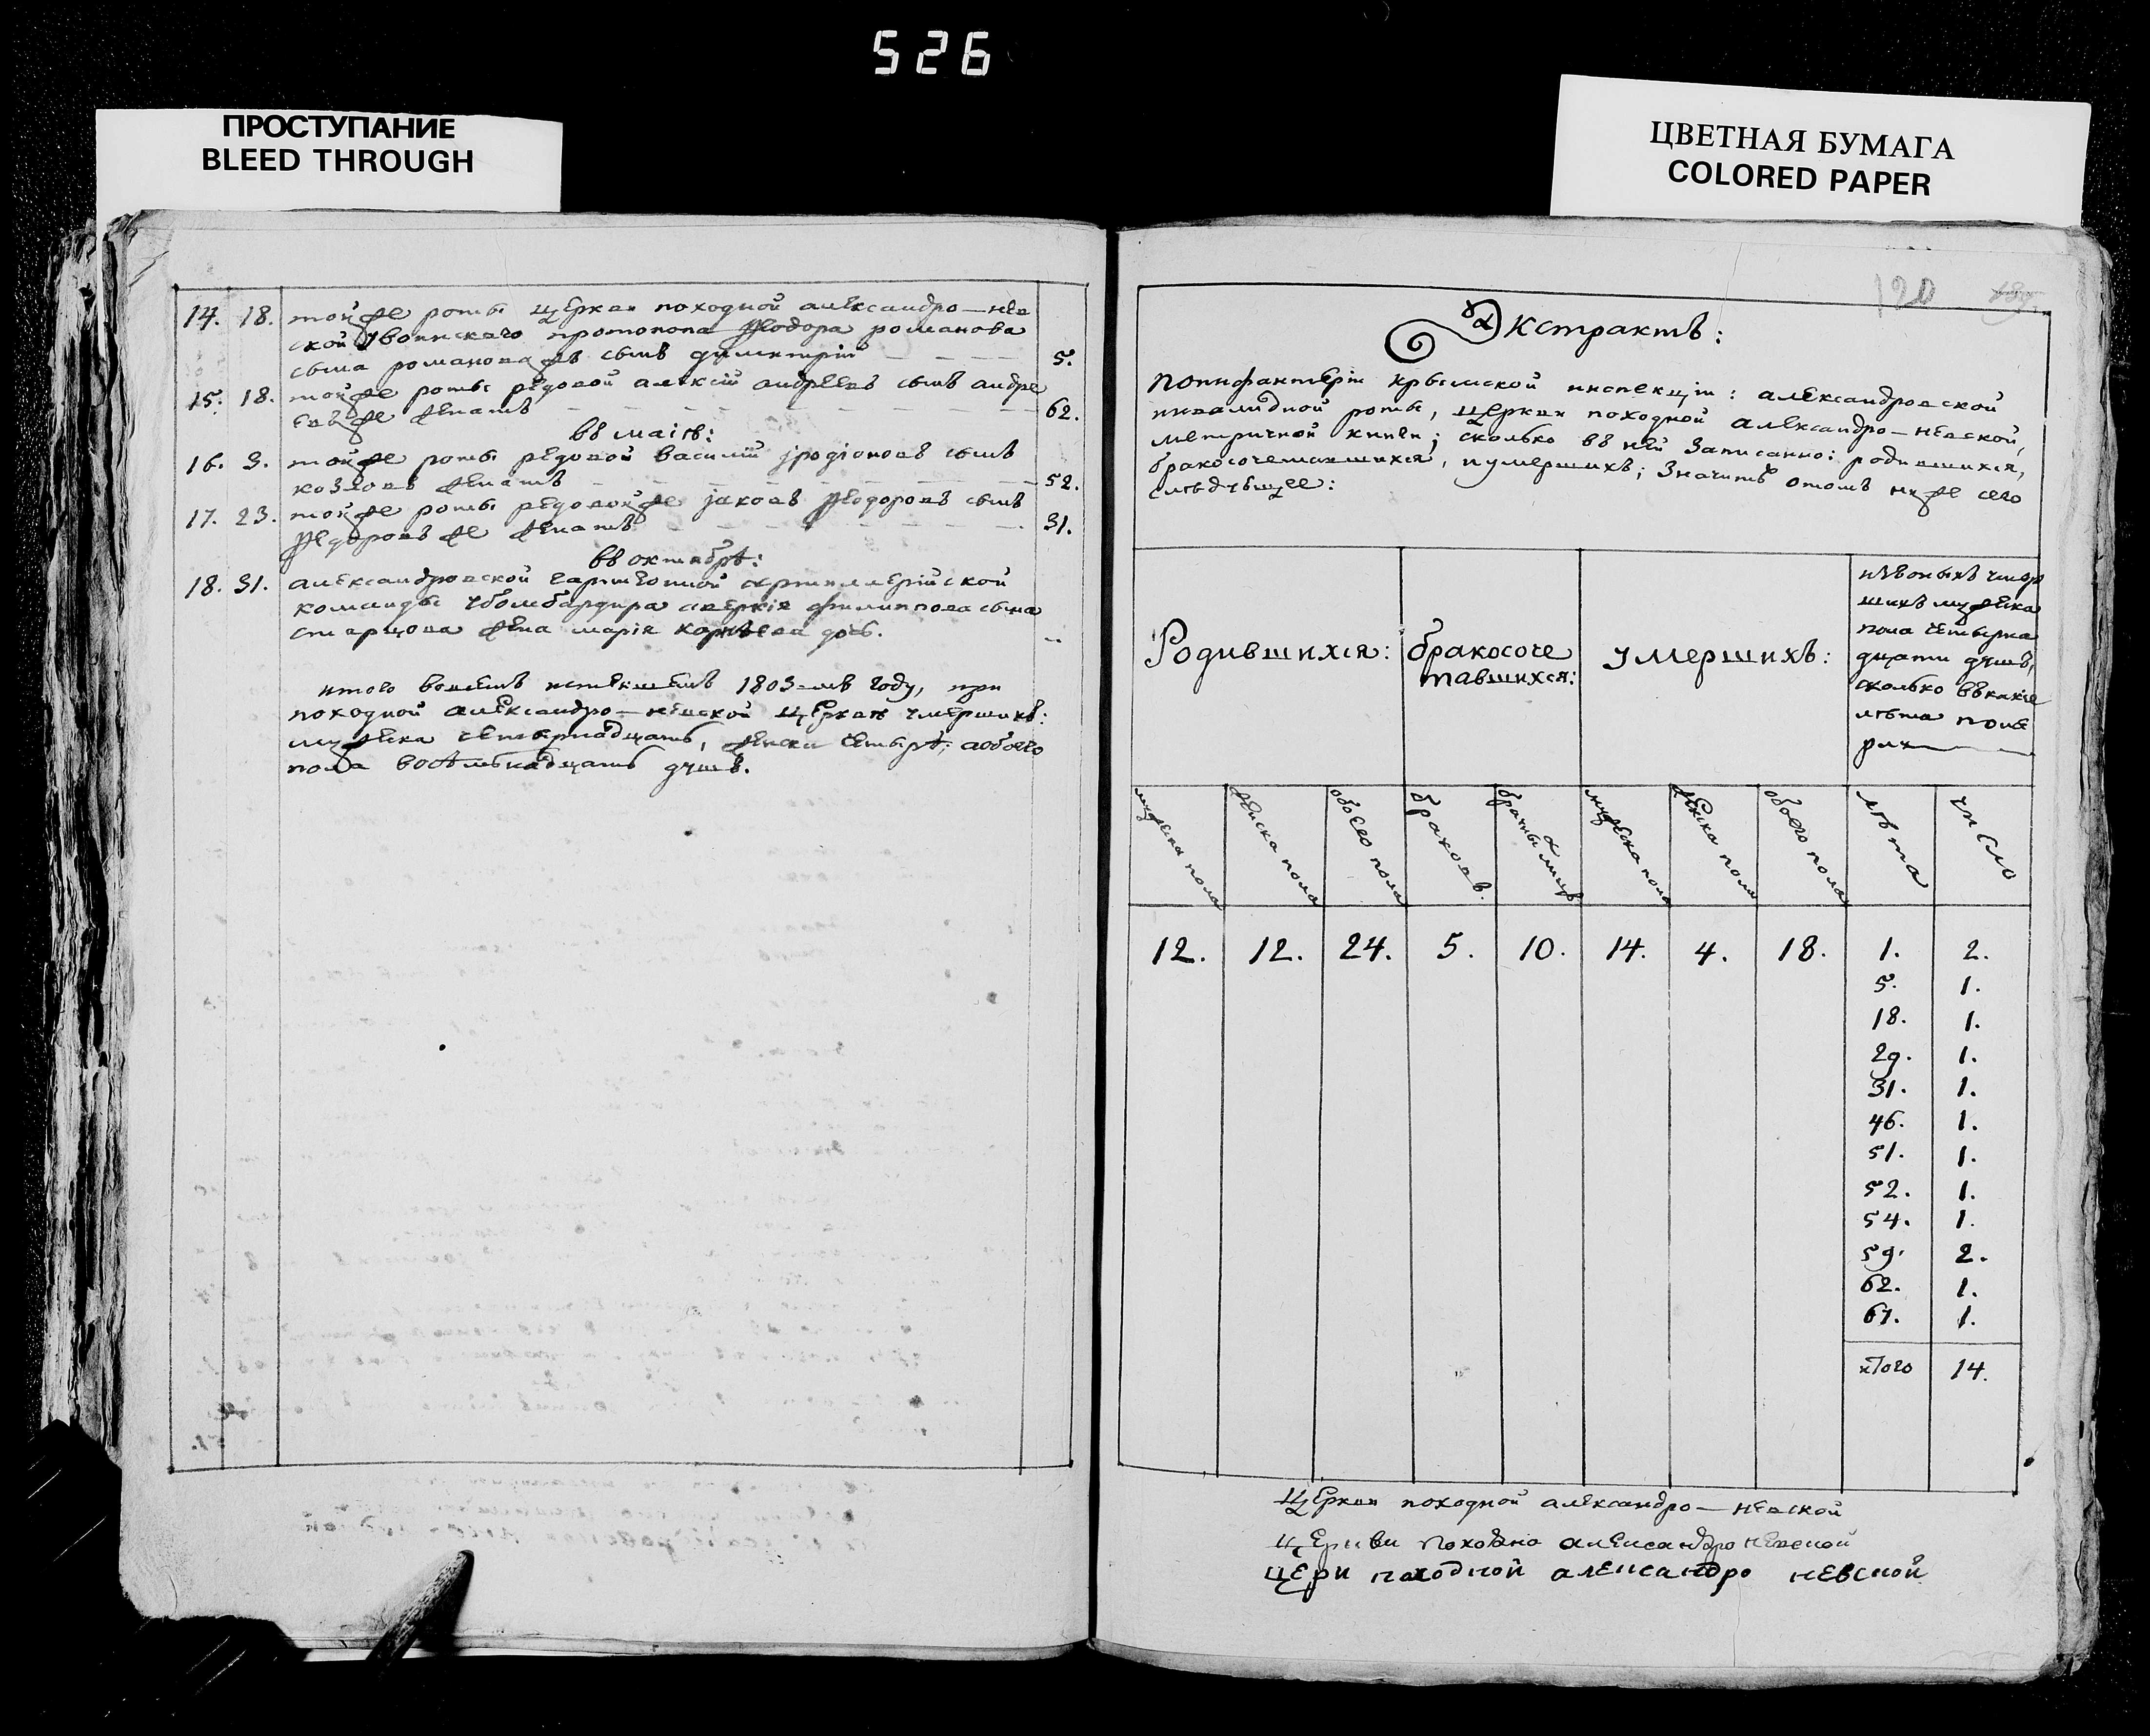 526
ПРОСТУПАНИЕ
BLEED THROUGH
ЦВЕТНАЯ БУМАГА
COLORED PAPER
14. 18. той же роты церкви походной александро—нев
ской увоинскаго протопопа Феодора романова
сына романова жъ сынъ димитрiй 5.
15. 18. той же роты рядовой алексiй андреевъ сынъ андре
евъ же женатъ 62.
въ маiѣ:
16. 3. той же роты рядовой василiй iродiоновъ сынъ
козловъ женатъ 52.
17. 23. той же роты рядовой же iаковъ Феодоровъ сынъ
Федоровъ же женатъ 31.
въ октябрѣ:
18. 31. александровской гарнизонной артиллерiйской
команды убомбардира аверкiя филиппова сына
старцова жена марiя дочь.
итого вовсемъ истекшемъ 1803-мъ году, при
походной александро—невской церквѣ умершихъ:
мужеска четырнадцать, женска четырѣ, аобоего
пола восѣмьнадцать душъ.
120
Экстрактъ:
Поинфантерiи крымской инспекцiи: александровской
инвалидной роты, церкви походной александро—невской,
метричной книги; сколько въ ней записанно: родившихся,
бракосочетавшихся, иумершихъ; значитъ отомъ ниже сего
слѣдующее:
Родившихся:
бракосоче
тавшихся:
умершихъ:
изъоныхъ умер
шихъ мужеска
пола четырна
дцати душъ,
сколько въкакiе
лѣта поме
рли
мужеска пола
женска пола
обоего пола
браковъ.
брачныхъ лицъ
мужеска пола
женска пола
обоего пола
лѣта
число
12. 12. 24. 5. 10. 14. 4. 18. 1. 2.
5. 1.
18. 1.
29. 1.
31. 1.
46. 1.
51. 1.
52. 1.
54. 1.
59. 2.
62. 1.
67. 1.
итого 14.
Церкви походной александро—невской
церкви походно александро невской
цери походной александро невской